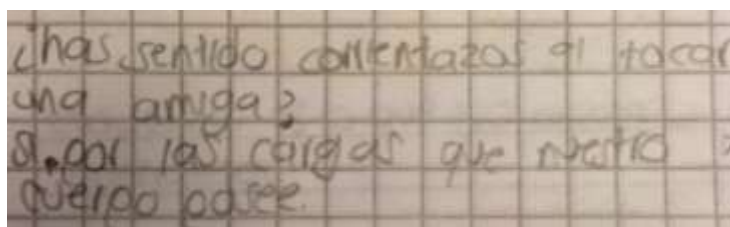 ¿has sentido corrientazos al tocar
una amiga?
si. por las cargas que nestro
cuerpo posee.